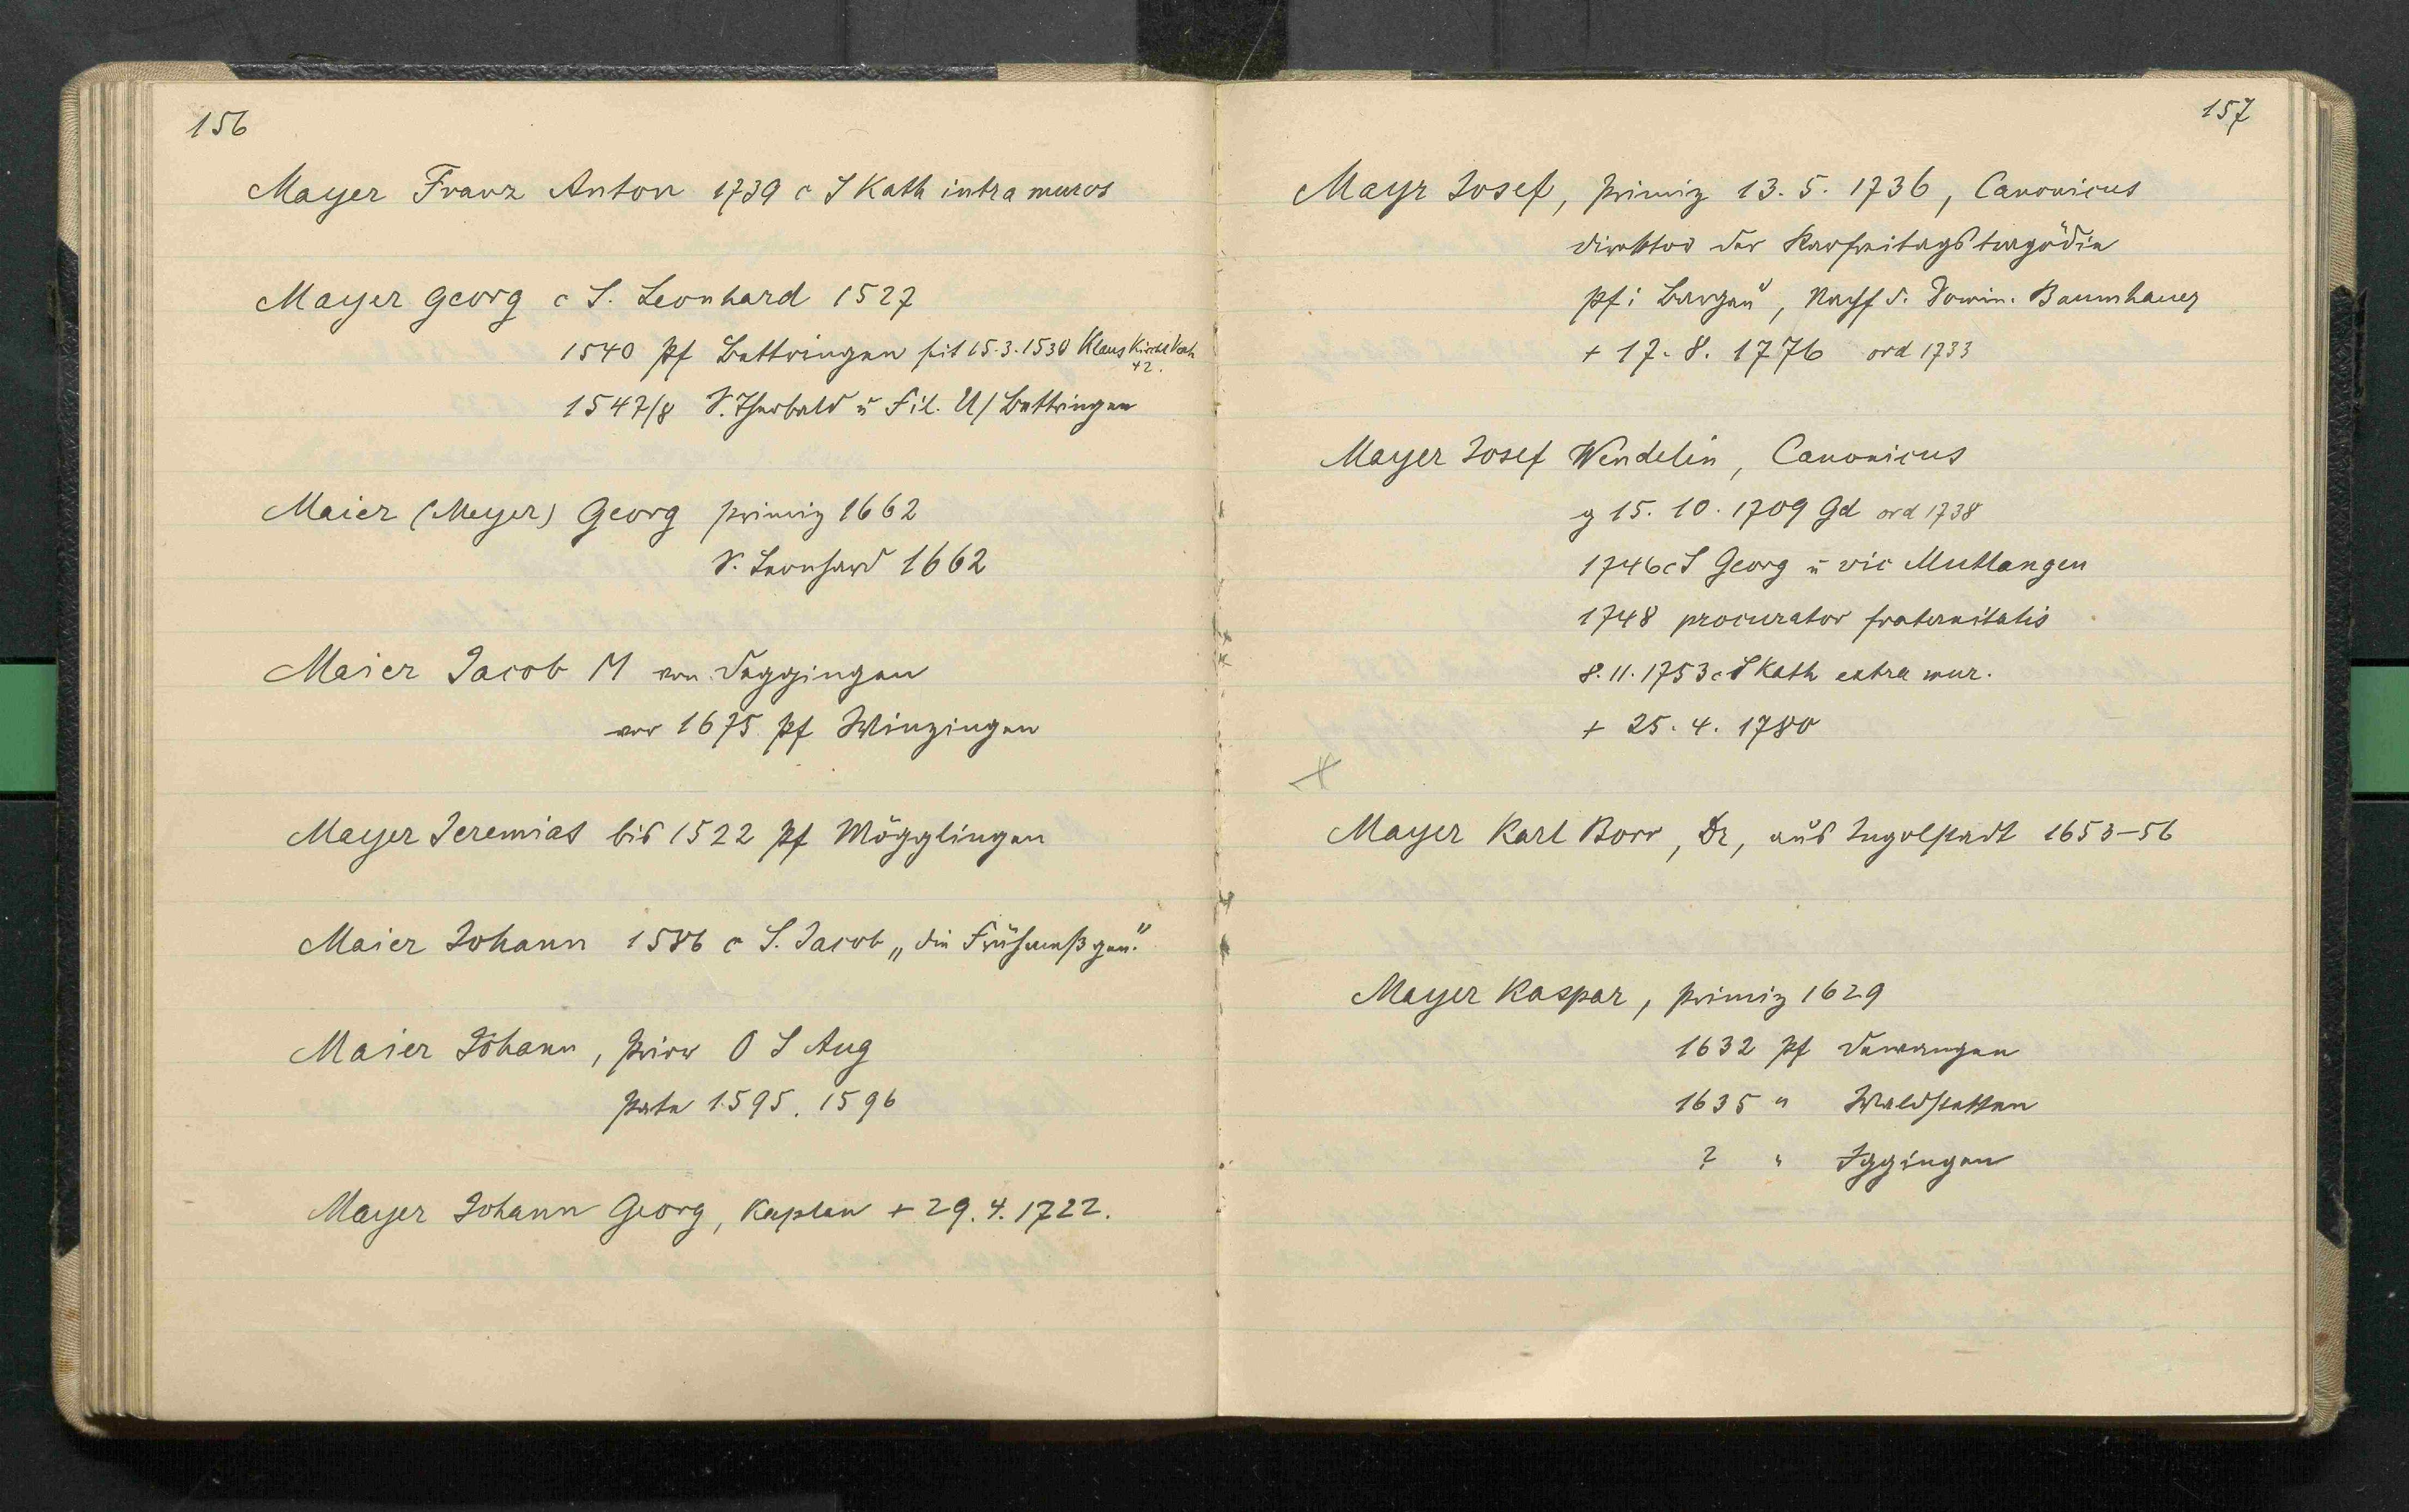 156
Mayer Franz Anton 1739 c S Kath intra muros
Mayer Georg c S. Leonhard 1527
1540 Pf Bettringen seit 15.3.1530 Klaus Kirchl
42.
1547/8 S. Theobald u Fil. U/Bettringen
Maier (Meyer) Georg Primiz 1662
S. Leonhard 1662
Maier Jacob M von Deggingen
vor 1675 Pf Winzingen
Mayer Jeremias bis 1522 Pf Mögglingen
Maier Johann 1586 c S. Jacob „die Frühmeß gen."
Maier Johann, Prior O S Aug
Pate 1595. 1596
Mayer Johann Georg, Kaplan + 29.4.1722.
157
Mayr Josef, Primiz 13.5.1736, Canonicus
Direktor der Karfreitagstragödie
Pf i Bargau, Nachf d. Domin. Baumhauer
+ 17.8.1776 ord 1733
Mayer Josef Wendelin, Canonicus
g 15.10.1709 Gd ord 1738
1746 c S Georg u vic Mutlangen
1748 procurator fraternitatis
8.11.1753 c S Kath extra mur.
+ 25.4.1780
Mayer Karl Borr, Dr, aus Ingolstadt 1653-56
Mayer Kaspar, Primiz 1629
1632 Pf Dewangen
1635 " Waldstetten
? " Iggingen